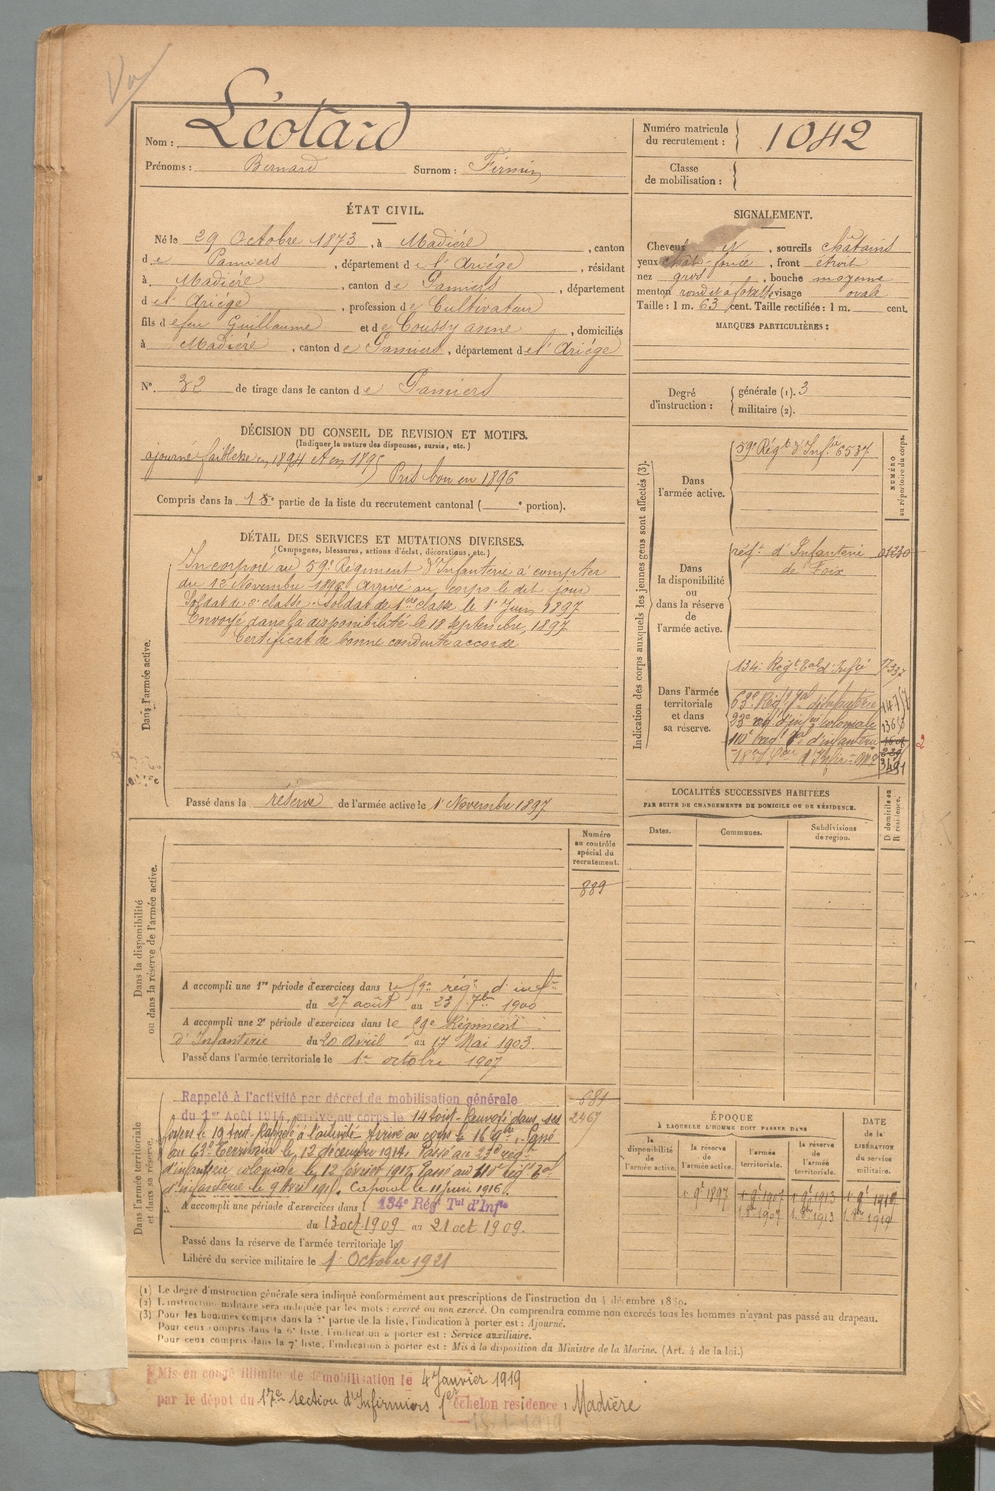 Nom : Léotard
Prénoms : Bernard Surnom : Firmin
Numéro matricule du recrutement : 1042
Classe de mobilisation :
ÉTAT CIVIL.
Né le 29 Octobre 1873, à Madière, canton
de Pamiers, département de l'Ariége, résidant
à Madière, canton de Pamiers, département
de l'Ariége, profession de Cultivateur
fils de feu Guillaume et de Coussy Anne, domiciliés
à Madière, canton de Pamiers, département de l'Ariége
N° 32 de tirage dans le canton de Pamiers
SIGNALEMENT.
Cheveux , sourcils châtains
yeux chat-foncé, front étroit
nez gros, bouche moyenne
menton rond et à fossette visage ovale
Taille : 1 m. 63 cent. Taille rectifiée : 1 m. cent.
MARQUES PARTICULIÈRES :
Degré d'instruction : générale (1). 3
militaire (2).
DÉCISION DU CONSEIL DE REVISION ET MOTIFS.
(Indiquer la nature des dispenses, sursis, etc.)
ajourné faiblesse en 1894 et en 1895
Pris bon en 1896
Compris dans la 1e partie de la liste du recrutement cantonal ( e portion).
DÉTAIL DES SERVICES ET MUTATIONS DIVERSES.
(Campagnes, blessures, actions d'éclat, décorations, etc.)
Dans l'armée active.
Incorporé au 59e Régiment d'Infanterie à compter
du 12 Novembre 1896 Arrivé au corps le dit jour
Soldat de 2e classe. Soldat de 1ère classe le 1er Juin 1897
Envoyé dans la disponibilité le 18 Septembre 1897
Certificat de bonne conduite accordé
Passé dans la réserve de l'armée active le 1 Novembre 1897
Indication des corps auxquels les jeunes gens sont affectés (3).
NUMÉRO au répertoire du corps.
Dans l'armée active.
59e Régt d'Infie 6537
Dans la disponibilité ou dans la réserve de l'armée active.
régt d'Infanterie 01230
de Foix
Dans l'armée territoriale et dans sa réserve.
134e Régt Eal d'Infie
63e Régt Tal d'infanterie
23e rég d'infie coloniale
110e régt Tal d'infanterie
3491
LOCALITÉS SUCCESSIVES HABITÉES
PAR SUITE DE CHANGEMENTS DE DOMICILE OU DE RÉSIDENCE.
Dates. Communes. Subdivisions de région. D domicile ou R résidence.
Dans la disponibilité ou dans la réserve de l'armée active.
Numéro au contrôle spécial du recrutement.
889
A accompli une 1re période d'exercices dans le 59e régt d'infie
du 27 août au 23 7bre 1900
A accompli une 2e période d'exercices dans le 59e Régiment
d'Infanterie du 20 Avril au 17 Mai 1903.
Passé dans l'armée territoriale le 1er octobre 1907
Dans l'armée territoriale et dans sa réserve.
Rappelé à l'activité par décret de mobilisation générale 681
du 1er Août 1914, arrivé au corps le 14 aout. Renvoyé dans ses 2467
foyers le 19 aout. Rappelé à l'activité Arrivé au corps le 16 9bre. Passé
au 63e Territorial le 12 décembre 1914. Passé au 23e régt
d'infanterie coloniale le 12 février 1915. Passé au 110e régt Tal
d'infanterie le 9 Avril 1915. Caporal le 11 juin 1916.
A accompli une période d'exercices dans l 134e Régt Tal d'Infie
du 13 oct 1909 au 21 oct 1909.
Passé dans la réserve de l'armée territoriale le
Libéré du service militaire le 1 Octobre 1921
ÉPOQUE
À LAQUELLE L'HOMME DOIT PASSER DANS
la disponibilité de l'armée active. la réserve de l'armée active. l'armée territoriale. la réserve de l'armée territoriale.
DATE de la LIBÉRATION du service militaire.
1 9e 1897 1 9e 1907 1 9e 1913 1 9e 1919
1.8bre 1907 1.8bre 1913 1.8bre 1919
(1) Le degré d'instruction générale sera indiqué conformément aux prescriptions de l'instruction du 4 décembre 1889.
(2) L'instruction militaire sera indiquée par les mots : exercé ou non exercé. On comprendra comme non exercés tous les hommes n'ayant pas passé au drapeau.
(3) Pour les hommes compris dans la 2e partie de la liste, l'indication à porter est : Ajourné.
Pour ceux compris dans la 6e liste, l'indication à porter est : Service auxiliaire.
Pour ceux compris dans la 7e liste, l'indication à porter est : Mis à la disposition du Ministre de la Marine. (Art. 4 de la loi.)
Mis en congé illimité de démobilisation le 4 Janvier 1919
par le dépot du 17e section d'Infirmiers 1er échelon residence : Madière